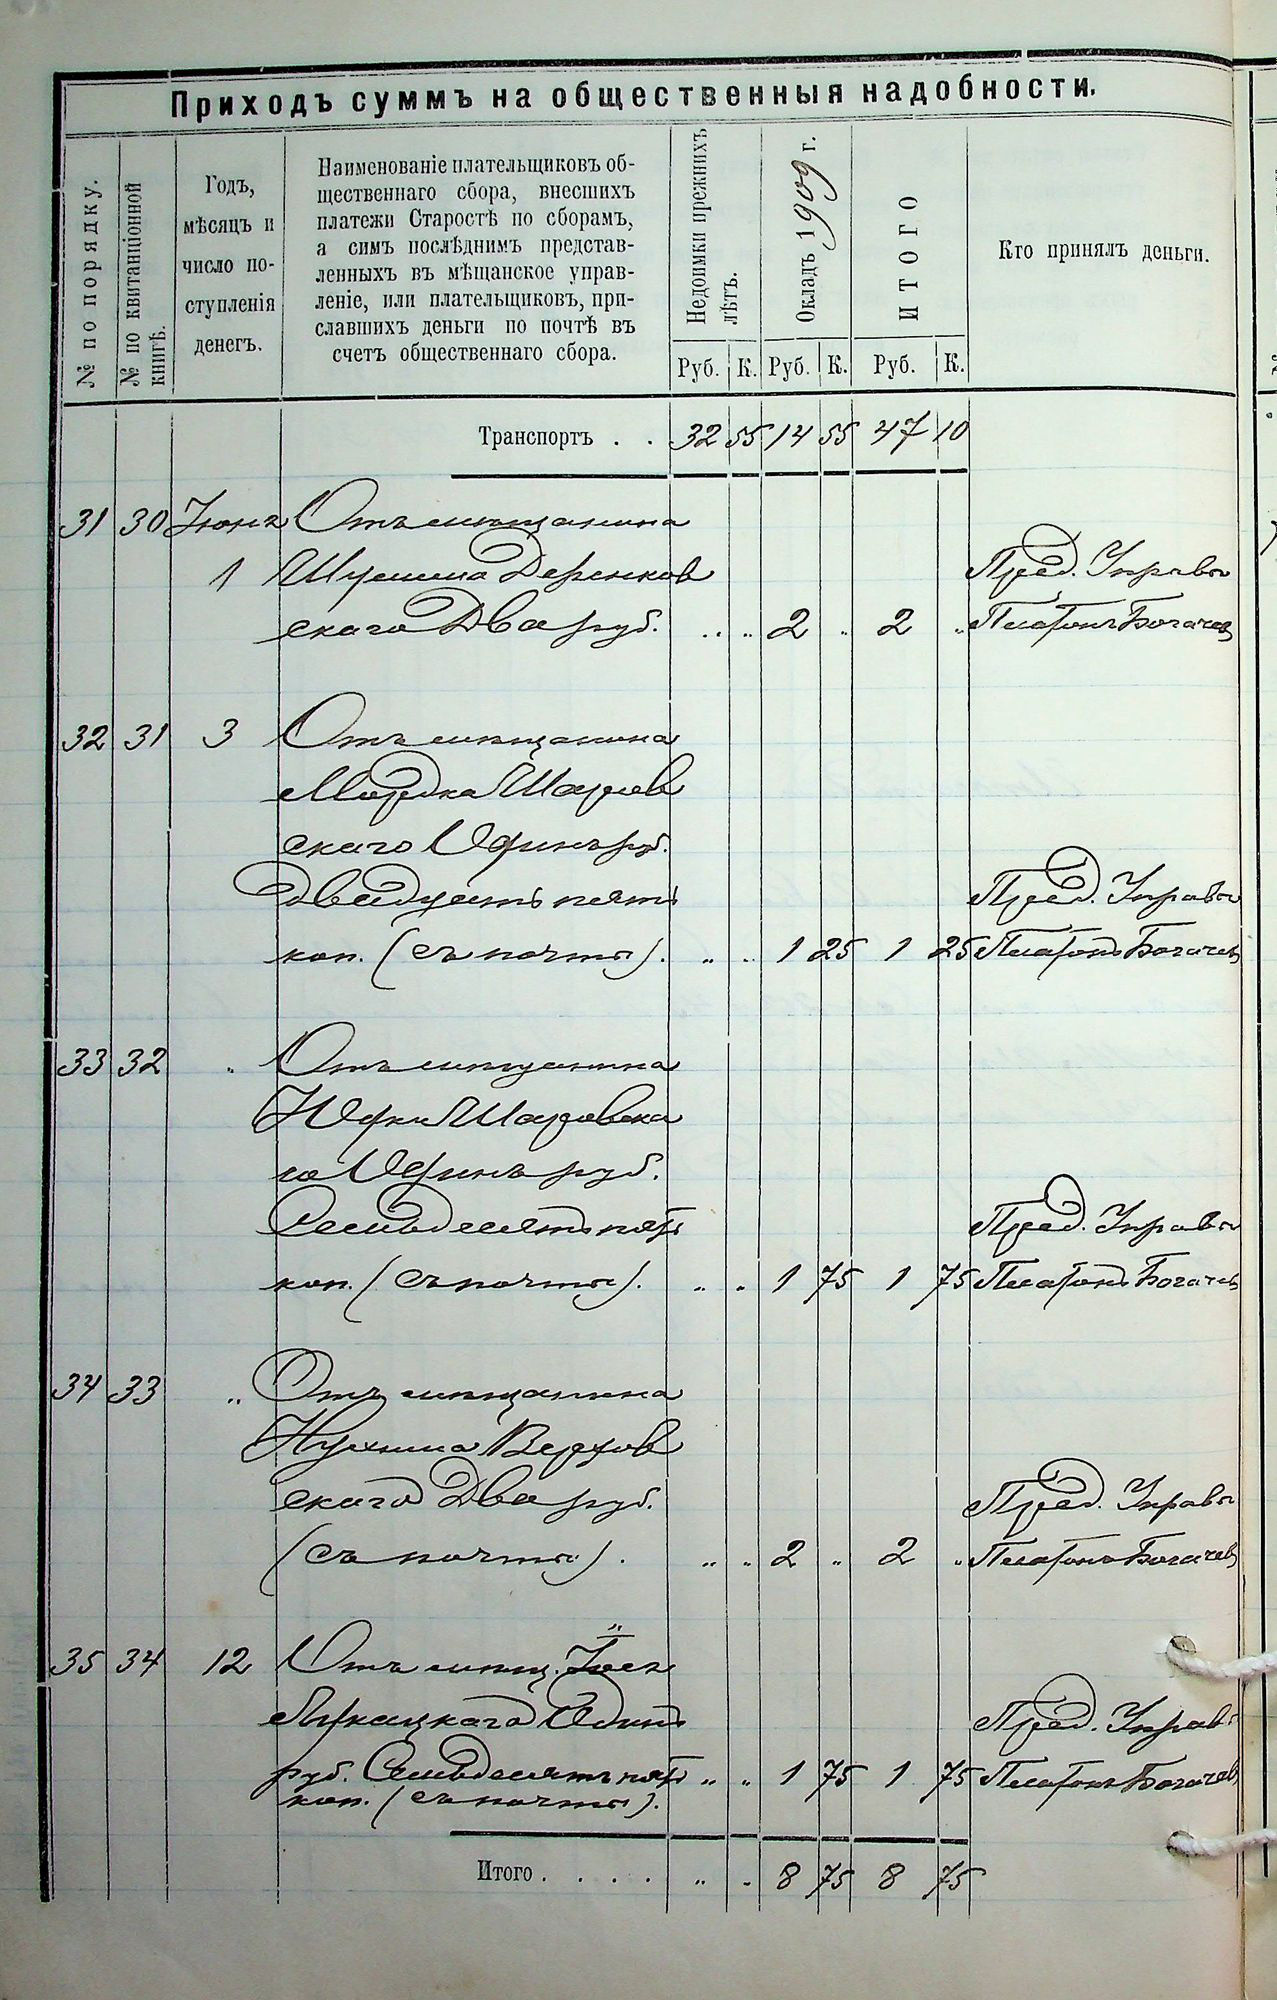 Приходъ суммъ на общественныя надобности.
№ по порядку.
№ по квитанціонной
книгѣ.
Годъ,
мѣсяцъ и
число по-
ступленія
денегъ.
Наименованіе плательщиковъ об-
щественнаго сбора, внесшихъ
платежи Старостѣ по сборамъ,
а симъ послѣднимъ представ-
ленныхъ въ мѣщанское управ-
леніе, или плательщиковъ, при-
славшихъ деньги по почтѣ въ
счетъ общественнаго сбора.
Недоимки прежнихъ
лѣтъ.
Окладъ 1909 г.
ИТОГО
Кто принялъ деньги.
Руб. К. Руб. К. Руб. К.
Транспортъ . . 32 55 14 55 47 10
31 30 Іюнь Отъ мѣщанина
1 Шулима Деренков
скаго Два руб. .. .. 2 .. 2 ..
Пред. Управы
Платонъ Богачев
32 31 3 Отъ мѣщанина
Мордка Шаров
скаго Одинъ руб.
двадцать пять
коп. (съ почты). .. .. 1 25 1 25
Пред. Управы
Платонъ Богачев
33 32 .. Отъ мѣщанина
Юдки Шаровска
го Одинъ руб.
Семьдесятъ пять
коп. (съ почты). .. .. 1 75 1 75
Пред. Управы
Платонъ Богачев
34 33 .. Отъ мѣщанина
Нухима Верхов
скаго Два руб.
(съ почты). .. .. 2 .. 2 ..
Пред. Управы
Платонъ Богачев
35 34 12 Отъ мѣщ.
Одинъ
руб. Семьдесятъ пять .. .. 1 75 1 75
коп. (съ почты).
Пред. Управы
Платонъ Богачев
Итого . . . . .. .. 8 75 8 75